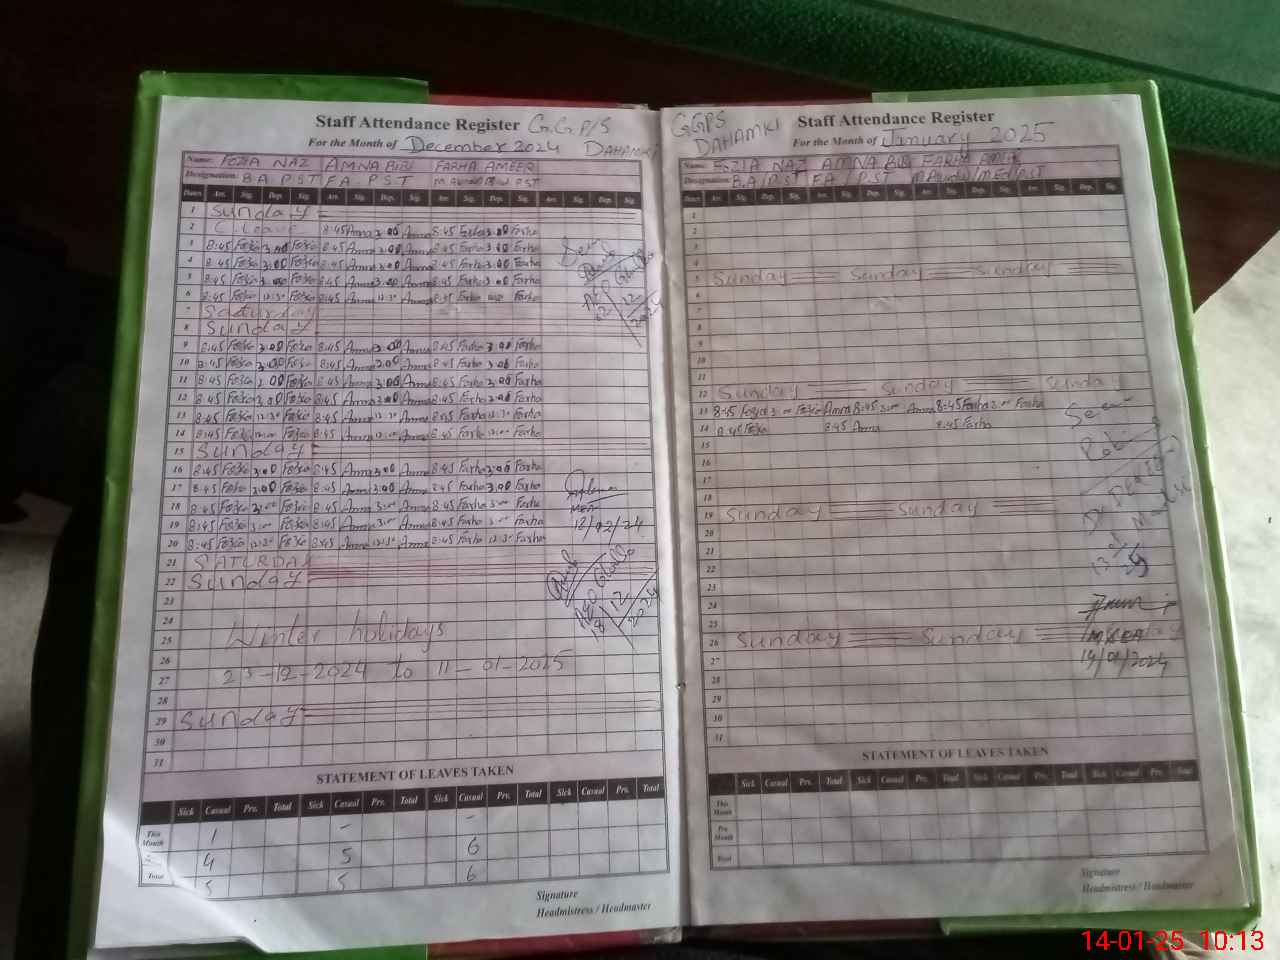 Staff Attendance Register G.G.P/S
For the Month of December 2024 DAHAMKI
Name: FOZIA NAZ AMNA BIBI FARHA AMEER
Designation: B.A P.S.T F.A P.S.T PST
Dates Arr. Sig. Dep. Sig. Arr. Sig. Dep. Sig. Arr. Sig. Dep. Sig. Arr. Sig. Dep. Sig.
1 Sunday
2 C. Leave 8:45 Amna 3:00 Amna 8:45 Farha 3:00 Farha
3 8:45 Fozia 3:00 Fozia 8:45 Amna 3:00 Amna 8:45 Farha 3:00 Farha
4 8:45 Fozia 3:00 Fozia 8:45 Amna 3:00 Amna 8:45 Farha 3:00 Farha
5 8:45 Fozia 3:00 Fozia 8:45 Amna 3:00 Amna 8:45 Farha 3:00 Farha
6 8:45 Fozia 12:30 Fozia 8:45 Amna 12:30 Amna 8:45 Farha Farha
7 Saturday
8 Sunday
9 8:45 Fozia 3:00 Fozia 8:45 Amna 3:00 Amna 8:45 Farha 3:00 Farha
10 8:45 Fozia 3:00 Fozia 8:45 Amna 3:00 Amna 8:45 Farha 3:00 Farha
11 8:45 Fozia 3:00 Fozia 8:45 Amna 3:00 Amna 8:45 Farha 3:00 Farha
12 8:45 Fozia 3:00 Fozia 8:45 Amna 3:00 Amna 8:45 Farha 3:00 Farha
13 8:45 Fozia 12:30 Fozia 8:45 Amna 12:30 Amna 8:45 Farha 12:30 Farha
14 8:45 Fozia 12:00 Fozia 8:45 Amna 12:00 Amna 8:45 Farha 12:00 Farha
15 Sunday
16 8:45 Fozia 3:00 Fozia 8:45 Amna 3:00 Amna 8:45 Farha 3:00 Farha
17 8:45 Fozia 3:00 Fozia 8:45 Amna 3:00 Amna 8:45 Farha 3:00 Farha
18 8:45 Fozia 3:00 Fozia 8:45 Amna 3:00 Amna 8:45 Farha 3:00 Farha
19 8:45 Fozia 3:00 Fozia 8:45 Amna 3:00 Amna 8:45 Farha 3:00 Farha
20 8:45 Fozia 12:30 Fozia 8:45 Amna 12:30 Amna 8:45 Farha 12:30 Farha
21 SATURDAY
22 Sunday
23
24
25 Winter holidays
26
27 23-12-2024 to 11-01-2025
28
29 Sunday
30
31
Seen
AEO
12/12/2024
MEA
18/12/24
AEO
18/12/2024
STATEMENT OF LEAVES TAKEN
Sick Casual Prv. Total Sick Casual Prv. Total Sick Casual Prv. Total Sick Casual Prv. Total
This Month 1 - -
4 5 6
Total 5 5 6
Signature
Headmistress / Headmaster
GGPS
DAHAMKI
Staff Attendance Register
For the Month of January 2025
Name: FOZIA NAZ AMNA BIBI FARHA AMEER
Designation: B.A / P.S.T FA / P.S.T M.Ed / P.S.T
Dates Arr. Sig. Dep. Sig. Arr. Sig. Dep. Sig. Arr. Sig. Dep. Sig. Arr. Sig. Dep. Sig.
1
2
3
4
5 Sunday Sunday Sunday
6
7
8
9
10
11
12 Sunday Sunday Sunday
13 8:45 Fozia 3:00 Fozia Amna 8:45 3:00 Amna 8:45 Farha 3:00 Farha
14 8:45 Fozia 8:45 Amna 8:45 Farha
15
16
17
18
19 Sunday Sunday
20
21
22
23
24
25
26 Sunday Sunday
27
28
29
30
31
Seen
MEA
14/01/2024
STATEMENT OF LEAVES TAKEN
Sick Casual Prv. Total Sick Casual Prv. Total Sick Casual Prv. Total Sick Casual Prv. Total
This Month
Pre. Month
Total
Signature
Headmistress / Headmaster
14-01-25 10:13